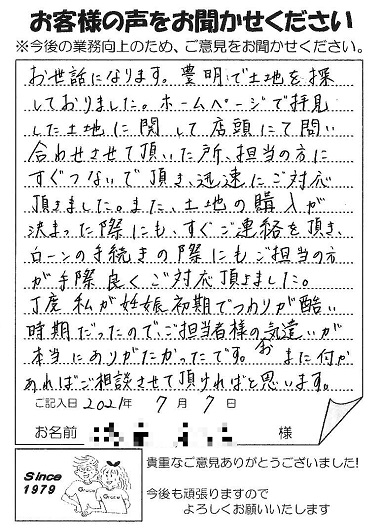 お客様の声をお聞かせください
※今後の業務向上のため、ご意見をお聞かせください。
お世話になります。豊明で土地を探
しておりました。ホームページで拝見
した土地に関して店頭にて問い
合わせさせて頂いた所、担当の方に
すぐつないで頂き、迅速にご対応
頂きました。また、土地の購入が
決まった際にも、すぐご連絡を頂き、
ローンの手続きの際にもご担当の方
が手際良くご対応頂きました。
丁度私が妊娠初期でつわりが酷い
時期だったので、ご担当者様のお気遣いが
本当にありがたかったです。また何か
あればご相談させて頂ければと思います。
ご記入日 2021年 7月 7日
お名前 様
Since
1979
貴重なご意見ありがとうございました!
今後も頑張りますので
よろしくお願いいたします